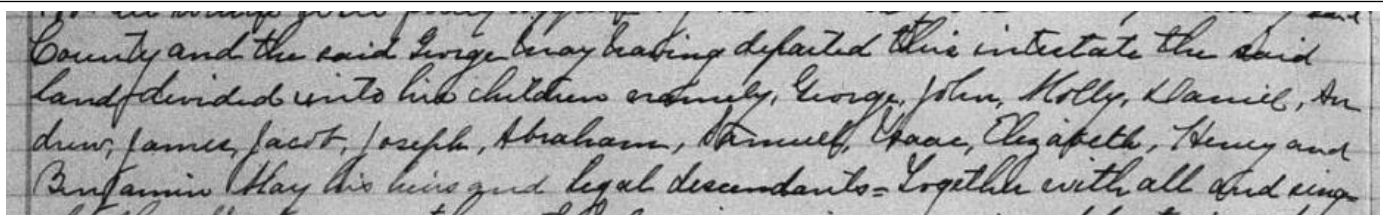 said
County and the said George May having departed this intestate the said
land divided into his children namely, George, John, Molly, Daniel, An
drew, James, Jacob, Joseph, Abraham, Samuel, Isaac, Elizabeth, Henry and
Benjamin May his heirs and legal descendants = Together with all and sing-